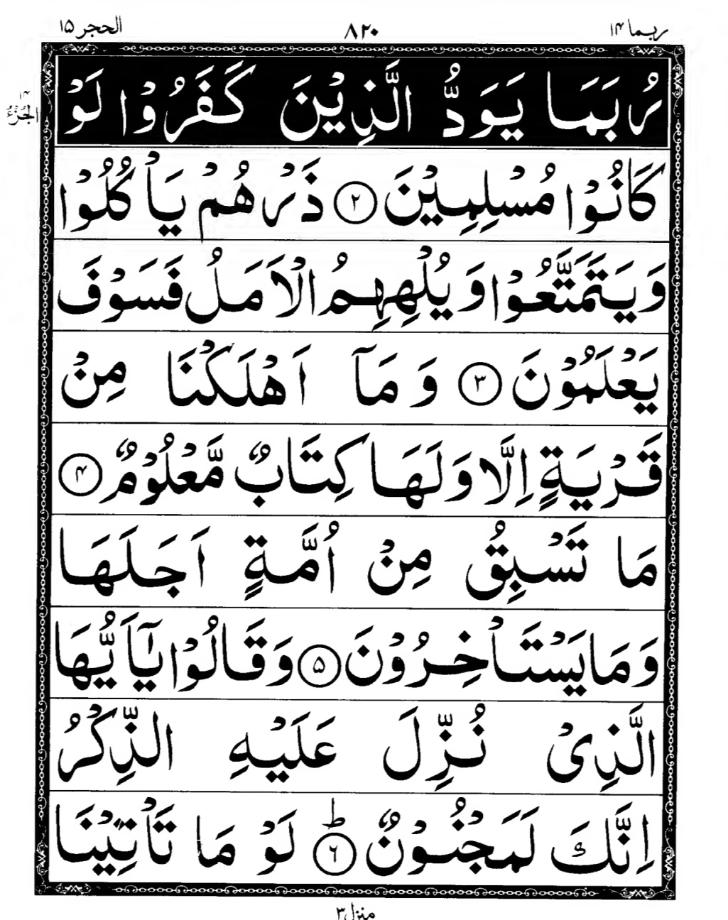 ربما ۱۴
۸۲۰
الحجر ۱۵
رُبَمَا يَوَدُّ الَّذِيْنَ كَفَرُوْا لَوْ
۱۴
الجُزْءُ
كَانُوْا مُسْلِمِيْنَ ۲ ذَرْهُمْ يَاْكُلُوْا
وَيَتَمَتَّعُوْا وَيُلْهِهِمُ الْاَمَلُ فَسَوْفَ
يَعْلَمُوْنَ ۳ وَمَآ اَهْلَكْنَا مِنْ
قَرْيَةٍ اِلَّا وَلَهَا كِتَابٌ مَّعْلُوْمٌ ۴
مَا تَسْبِقُ مِنْ اُمَّةٍ اَجَلَهَا
وَمَا يَسْتَاْخِرُوْنَ ۵ وَقَالُوْا يٰٓاَيُّهَا
الَّذِيْ نُزِّلَ عَلَيْهِ الذِّكْرُ
اِنَّكَ لَمَجْنُوْنٌ ۶ ط لَوْ مَا تَاْتِيْنَا
منزل ۳